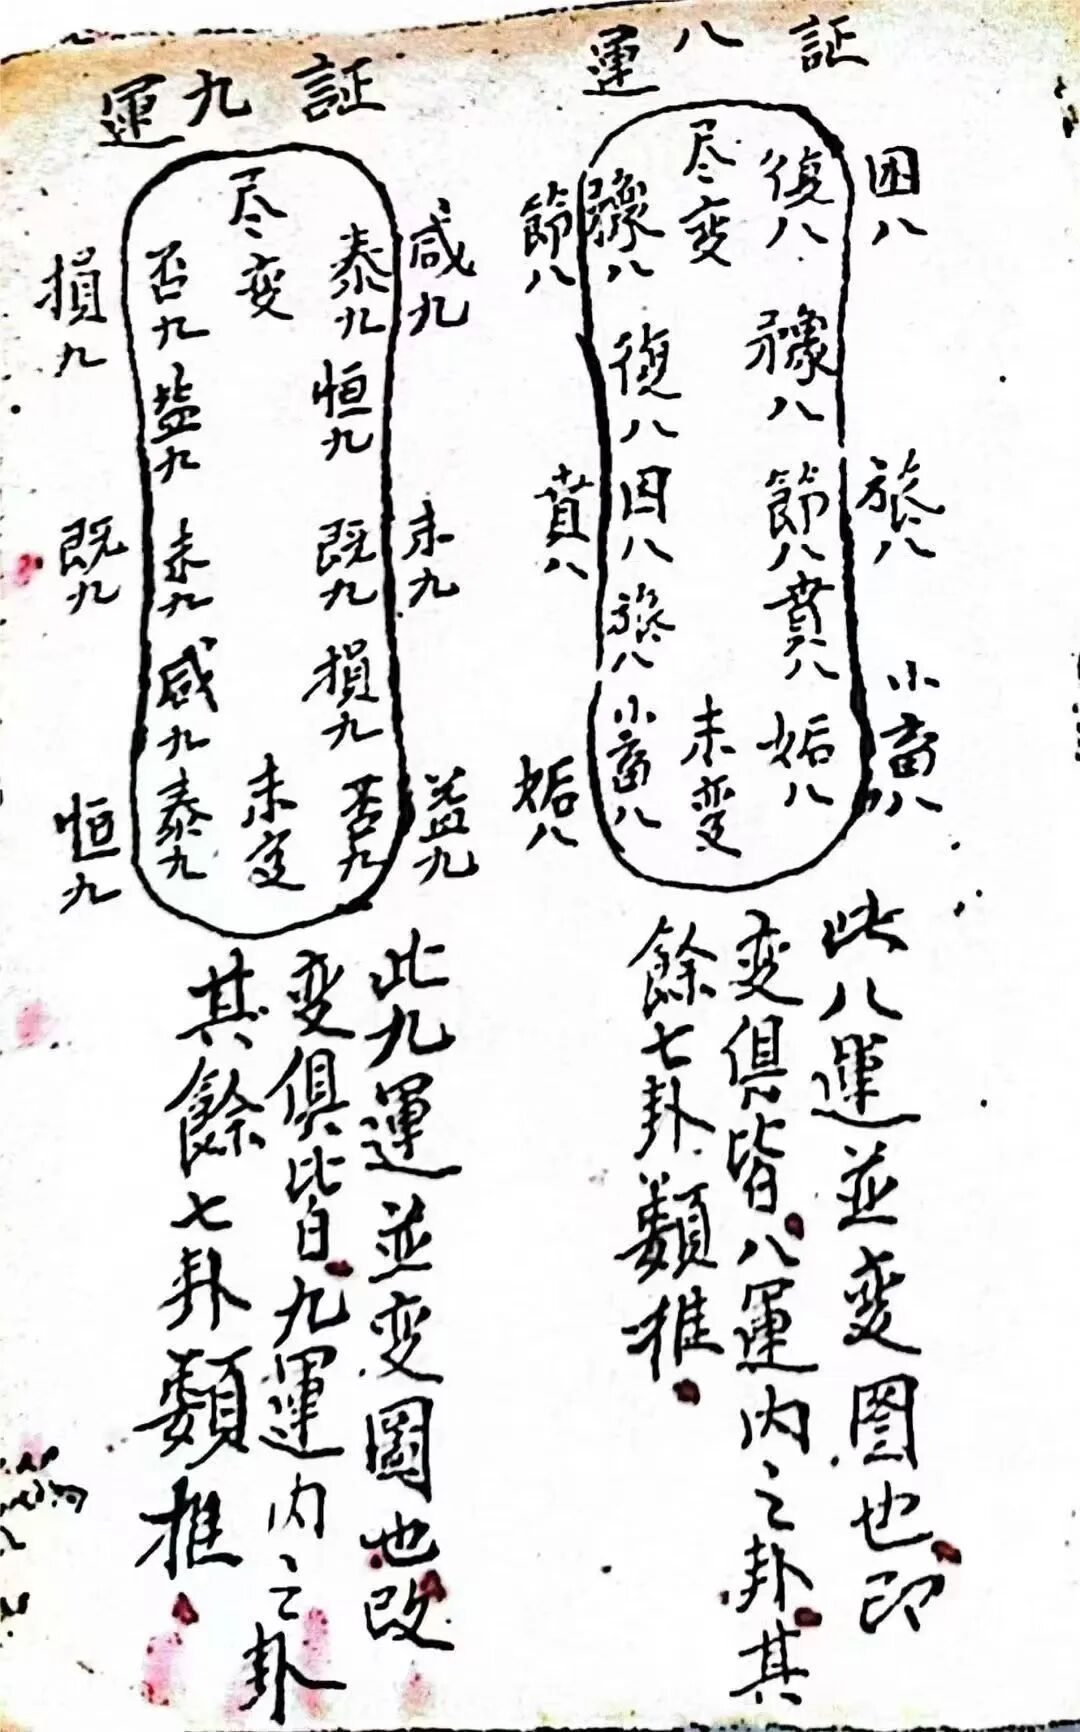 証八運
困八
旅八
小畜八
復八
豫八
節八
賁八
姤八
尽变
未变
豫八
復八
困八
旅八
小畜八
節八
賁八
姤八
此八運並变圖也即
变俱皆八運内之卦其
餘七卦類推
証九運
咸九
未九
益九
泰九
恒九
既九
損九
否九
尽变
未变
否九
益九
未九
咸九
泰九
損九
既九
恒九
此九運並变圖也改
变俱皆九運内之卦
其餘七卦類推